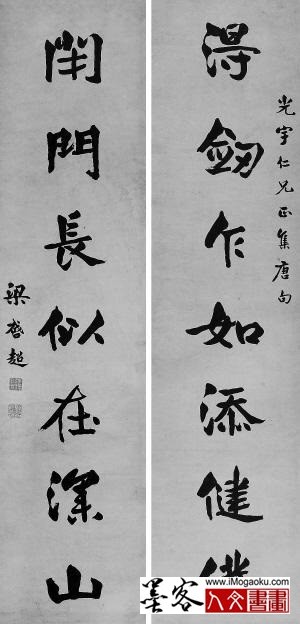 光宇仁兄正集唐句
得劒乍如添健僕
閉門長似在深山
梁啓超
墨客
www.iMogaoku.com
人文書畫